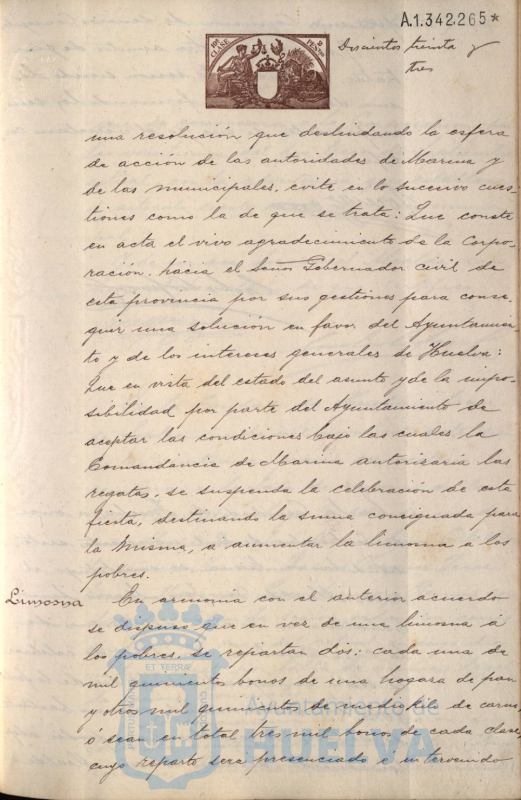 A.1.342.265*
10ª CLASE
2 PESETAS
Doscientos treinta y
tres
una resolución que deslindando la esfera
de acción de las autoridades de Marina y
de las municipales, evite en lo sucesivo cues
tiones como la de que se trata: Que conste
en acta el vivo agradecimiento de la Corpo-
ración, hacia el Señor Gobernador civil de
esta provincia por sus gestiones para conse
guir una solución en favor del Ayuntamien
to y de los intereses generales de Huelva:
Que en vista del estado del asunto y de la impo-
sibilidad por parte del Ayuntamiento de
aceptar las condiciones bajo las cuales la
Comandancia de Marina autorizaria las
regatas, se suspenda la celebración de esta
fiesta, destinando la suma consignada para
la misma, á aumentar la limosna á los
pobres.
Limosna
En armonia con el anterior acuerdo
se dispuso que en vez de una limosna á
los pobres, se repartan dos: cada una de
mil quinientos bonos de una hogaza de pan
y otros mil quinientos de medio kilo de carne,
ó sean en total tres mil bonos de cada clase,
cuyo reparto será presenciado é intervenido
ET TERRÆ
Ayuntamiento de
HUELVA